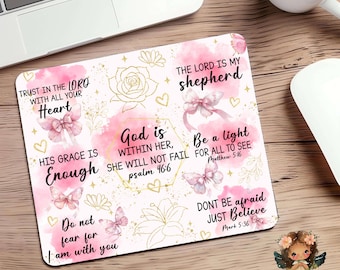 TRUST IN THE LORD
WITH ALL YOUR
Heart
THE LORD IS MY
shepherd
God is
WITHIN HER,
SHE WILL NOT FAIL
psalm 46:6
HIS GRACE IS
Enough
Be a light
FOR ALL TO SEE
Matthew 5:16
Do not
fear for
I am with you
DONT BE afraid
JUST Believe
Mark 5:36